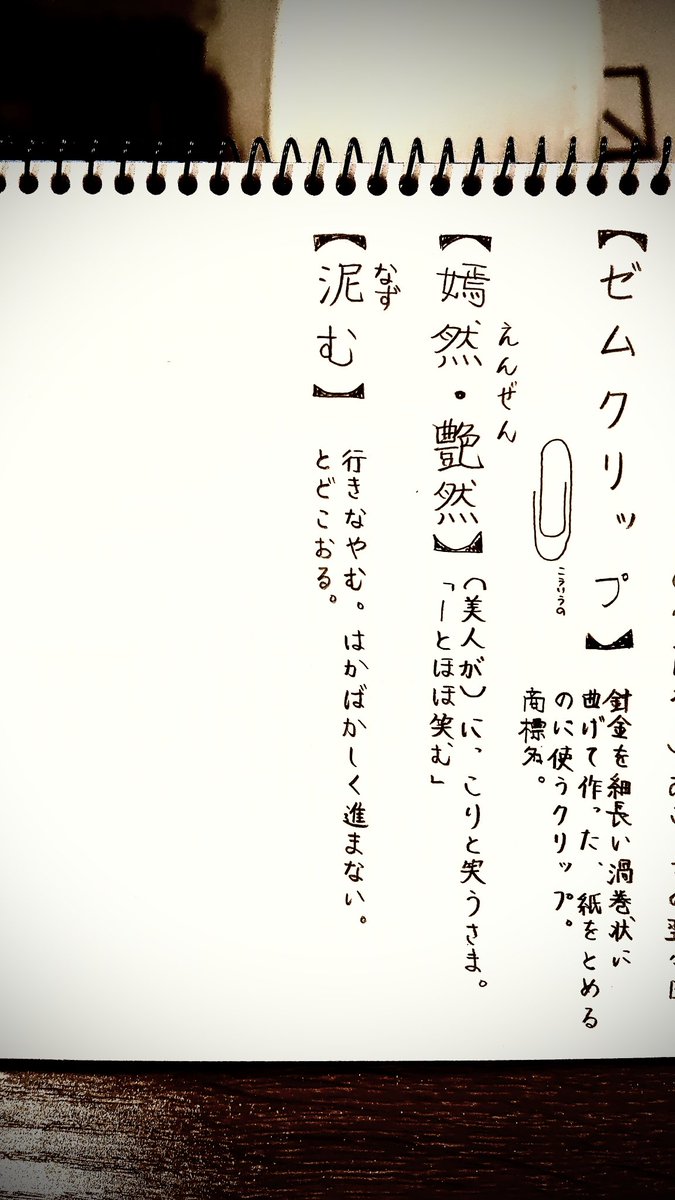 【ゼムクリップ】
針金を細長い渦巻状に
曲げて作った、紙をとめる
のに使うクリップ。
商標名。
こういうの
えんぜん
【嫣然・艶然】
(美人が)にっこりと笑うさま。
「―とほほ笑む」
なず
【泥む】
行きなやむ。はかばかしく進まない。
とどこおる。